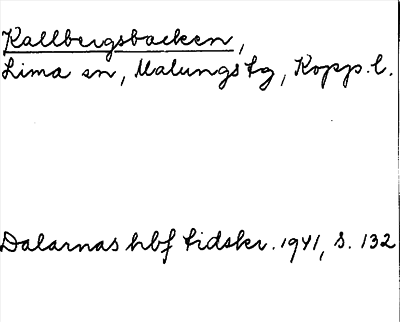 Kallbergsbacken,
Lima sn, Malungs tg, Kopp. l.
Dalarnas hbf tidskr. 1941, s. 132